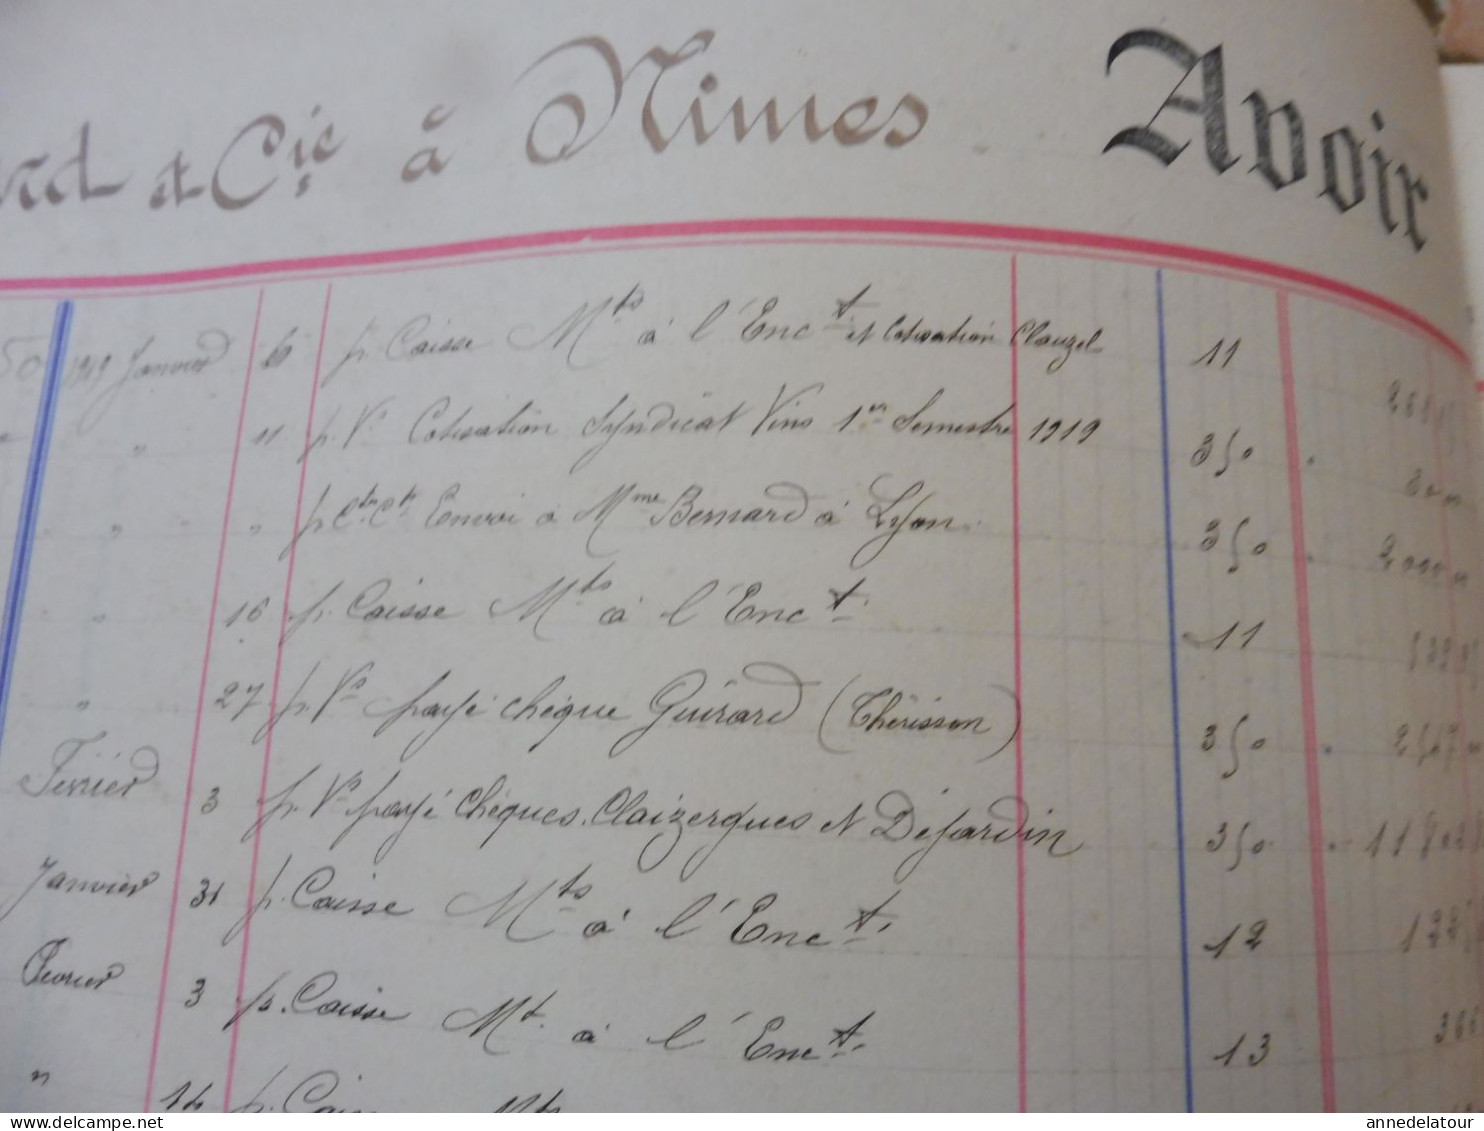 et Cie à Nimes Avoir
1919 Janvier p. Caisse Mts à l'Enct et Cotisation Clauzel 11
" 11 p. Vo Cotisation Syndicat Vins 1er Semestre 1919 350
" " p. Cte Ct Envoi à Mme Bernard à Lyon 350 2000
" 16 p. Caisse Mts à l'Enct 11
" 27 p. Vo payé chèque Guirard (Thérisson) 350
Février 3 p. Vo payé Chèques Claizergues et Déjardin 350
Janvier 31 p. Caisse Mts à l'Enct 12
Février 3 p. Caisse Mt à l'Enct 13
" 14 p. Caisse Mts
delcampe.net
annedelatour